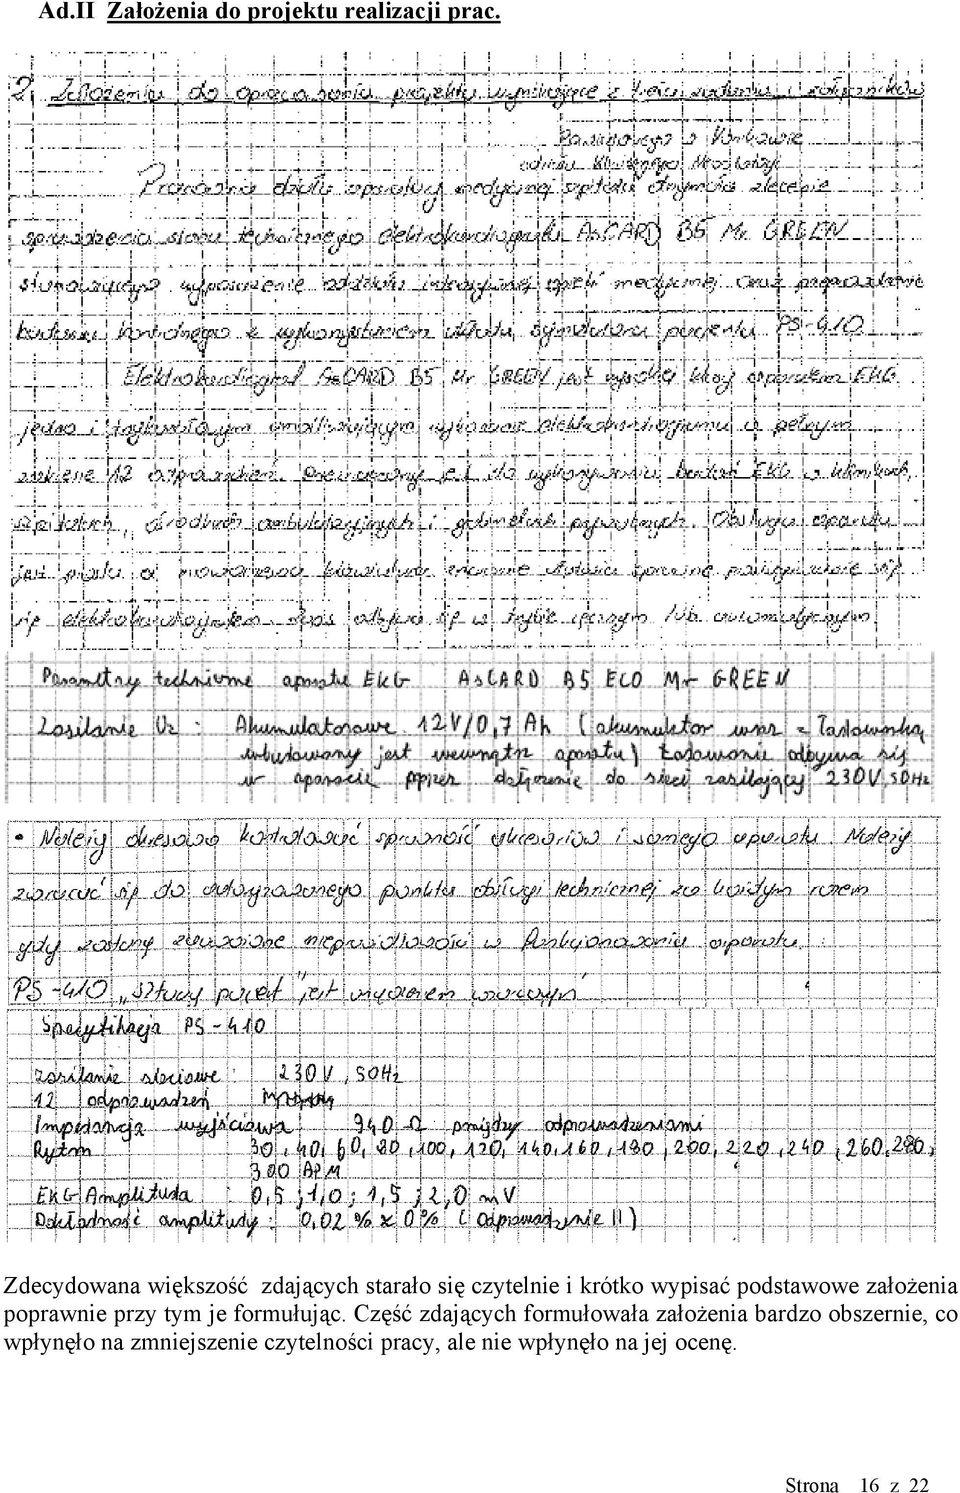 Ad.II Założenia do projektu realizacji prac.
2. Założenia do opracowania projektu wynikające z treści zadania i załączników
Pracownia działu aparatury medycznej szpitala otrzymała zlecenie
sprawdzenia stanu technicznego elektrokardiografu AsCARD B5 Mr GREEN
stanowiącego wyposażenie oddziału intensywnej opieki medycznej oraz
kontrolnego z wykorzystaniem układu symulatora pacjenta PS-410
Elektrokardiograf AsCARD B5 Mr GREEN jest wysokiej klasy aparatem EKG
jedno i trzykanałowym umożliwiającym wykonanie elektrokardiogramu w pełnym
zakresie 12 odprowadzeń. Przeznaczony jest do wykonywania badań EKG w klinikach,
szpitalach, ośrodkach ambulatoryjnych i gabinetach prywatnych. Obsługa aparatu
jest prosta a
się elektrokardiografem. Zapis odbywa się w trybie ręcznym lub automatycznym
Parametry techniczne aparatu EKG AsCARD B5 ECO Mr GREEN
Zasilanie Uz : Akumulatorowe 12V/0,7 Ah (akumulator wraz z ładowarką
wbudowany jest wewnątrz aparatu) Ładowanie odbywa się
w aparacie poprzez dołączenie do sieci zasilającej 230V, 50Hz
• Należy okresowo kontrolować sprawność akcesoriów i samego aparatu. Należy
zwrócić się do autoryzowanego punktu obsługi technicznej za każdym razem
gdy zostaną zauważone nieprawidłowości w funkcjonowaniu aparatu.
PS-410 "Sztuczny pacjent" jest urządzeniem wzorcowym
Specyfikacja PS-410
Zasilanie sieciowe : 230V, 50Hz
12 odprowadzeń
Impedancja wyjściowa 940 Ω pomiędzy odprowadzeniami
Rytm 30, 40, 60, 80, 100, 120, 140, 160, 180, 200, 220, 240, 260, 280,
300 APM
EKG Amplituda : 0,5 ; 1,0 ; 1,5 ; 2,0 mV
Dokładność amplitudy : 0,02 % x 0% (Odprowadzenie II)
Zdecydowana większość zdających starało się czytelnie i krótko wypisać podstawowe założenia
poprawnie przy tym je formułując. Część zdających formułowała założenia bardzo obszernie, co
wpłynęło na zmniejszenie czytelności pracy, ale nie wpłynęło na jej ocenę.
Strona 16 z 22